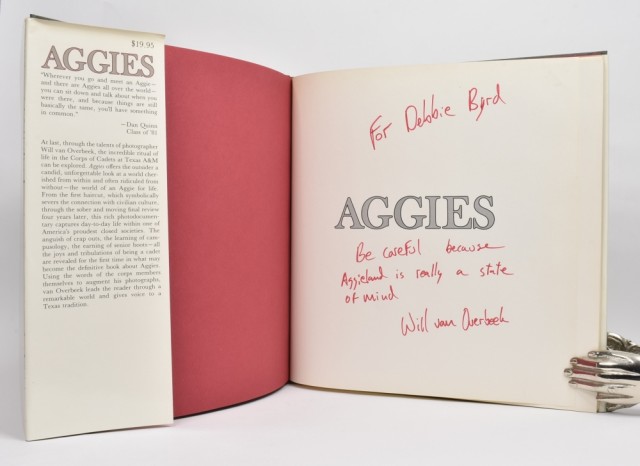 $19.95
AGGIES
"Wherever you go and meet an Aggie—
and there are Aggies all over the world—
you can sit down and talk about when you
were there, and because things are still
basically the same, you'll have something
in common."
—Dan Quinn
Class of '81
At last, through the talents of photographer
Will van Overbeek, the incredible ritual of
life in the Corps of Cadets at Texas A&M
can be explored. Aggies offers the outsider a
candid, unforgettable look at a world cher-
ished from within and often ridiculed from
without—the world of an Aggie for life.
From the first haircut, which symbolically
severs the connection with civilian culture,
through the sober and moving final review
four years later, this rich photodocumen-
tary captures day-to-day life within one of
America's proudest closed societies. The
anguish of crap outs, the learning of cam-
pusology, the earning of senior boots—all
the joys and tribulations of being a cadet
are revealed for the first time in what may
become the definitive book about Aggies.
Using the words of the corps members
themselves to augment his photographs,
van Overbeek leads the reader through a
remarkable world and gives voice to a
Texas tradition.
For Debbie Byrd
AGGIES
Be careful because
Aggieland is really a state
of mind
Will van Overbeek